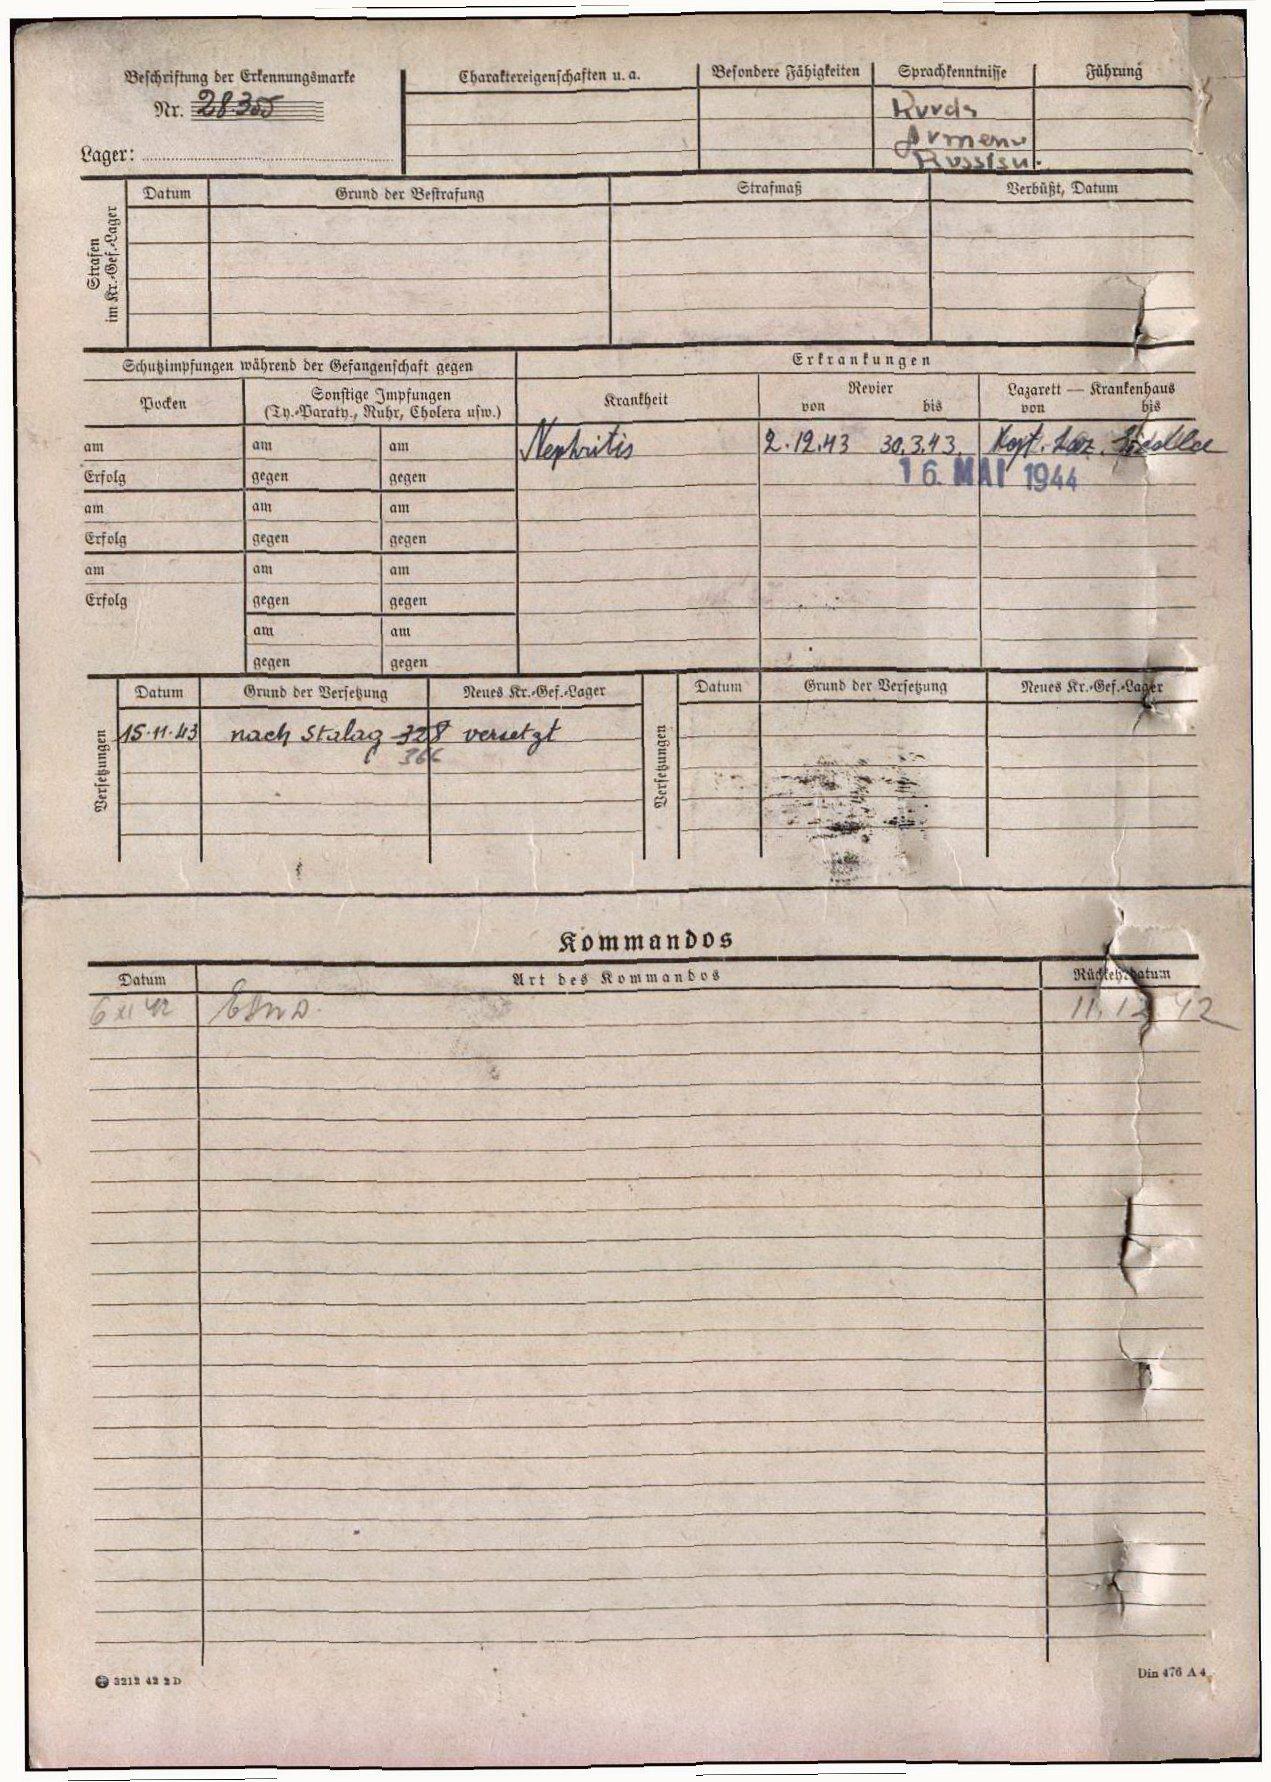 Beschriftung der Erkennungsmarke
Nr. 28355
Lager:
Charaktereigenschaften u. a.
Besondere Fähigkeiten
Sprachkenntnisse
Führung
Kurds
Armenu
Russisu.
Strafen im Kr.-Gef.-Lager
Datum
Grund der Bestrafung
Strafmaß
Verbüßt, Datum
Schutzimpfungen während der Gefangenschaft gegen
Erkrankungen
Pocken
Sonstige Impfungen
(Ty.-Paraty., Ruhr, Cholera usw.)
Krankheit
Revier
von bis
Lazarett — Krankenhaus
von bis
am am am
Nephritis 2.12.43 30.3.43. Laz.
Erfolg gegen gegen
16. MAI 1944
am am am
Erfolg gegen gegen
am am am
Erfolg gegen gegen
am am
gegen gegen
Versetzungen
Datum Grund der Versetzung Neues Kr.-Gef.-Lager
15.11.43 nach Stalag 328 versetzt
366
Versetzungen
Datum Grund der Versetzung Neues Kr.-Gef.-Lager
Kommandos
Datum Art des Kommandos Rückkehrdatum
6 XI 42 11.12 42
3212 42 2 D
Din 476 A 4